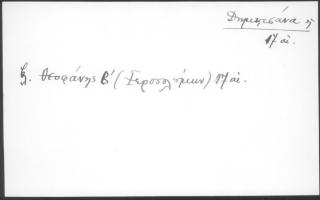 Δημητσάνα
17 αι.
Θεοφάνης Β' (Ιεροσολύμων) 17 αι.